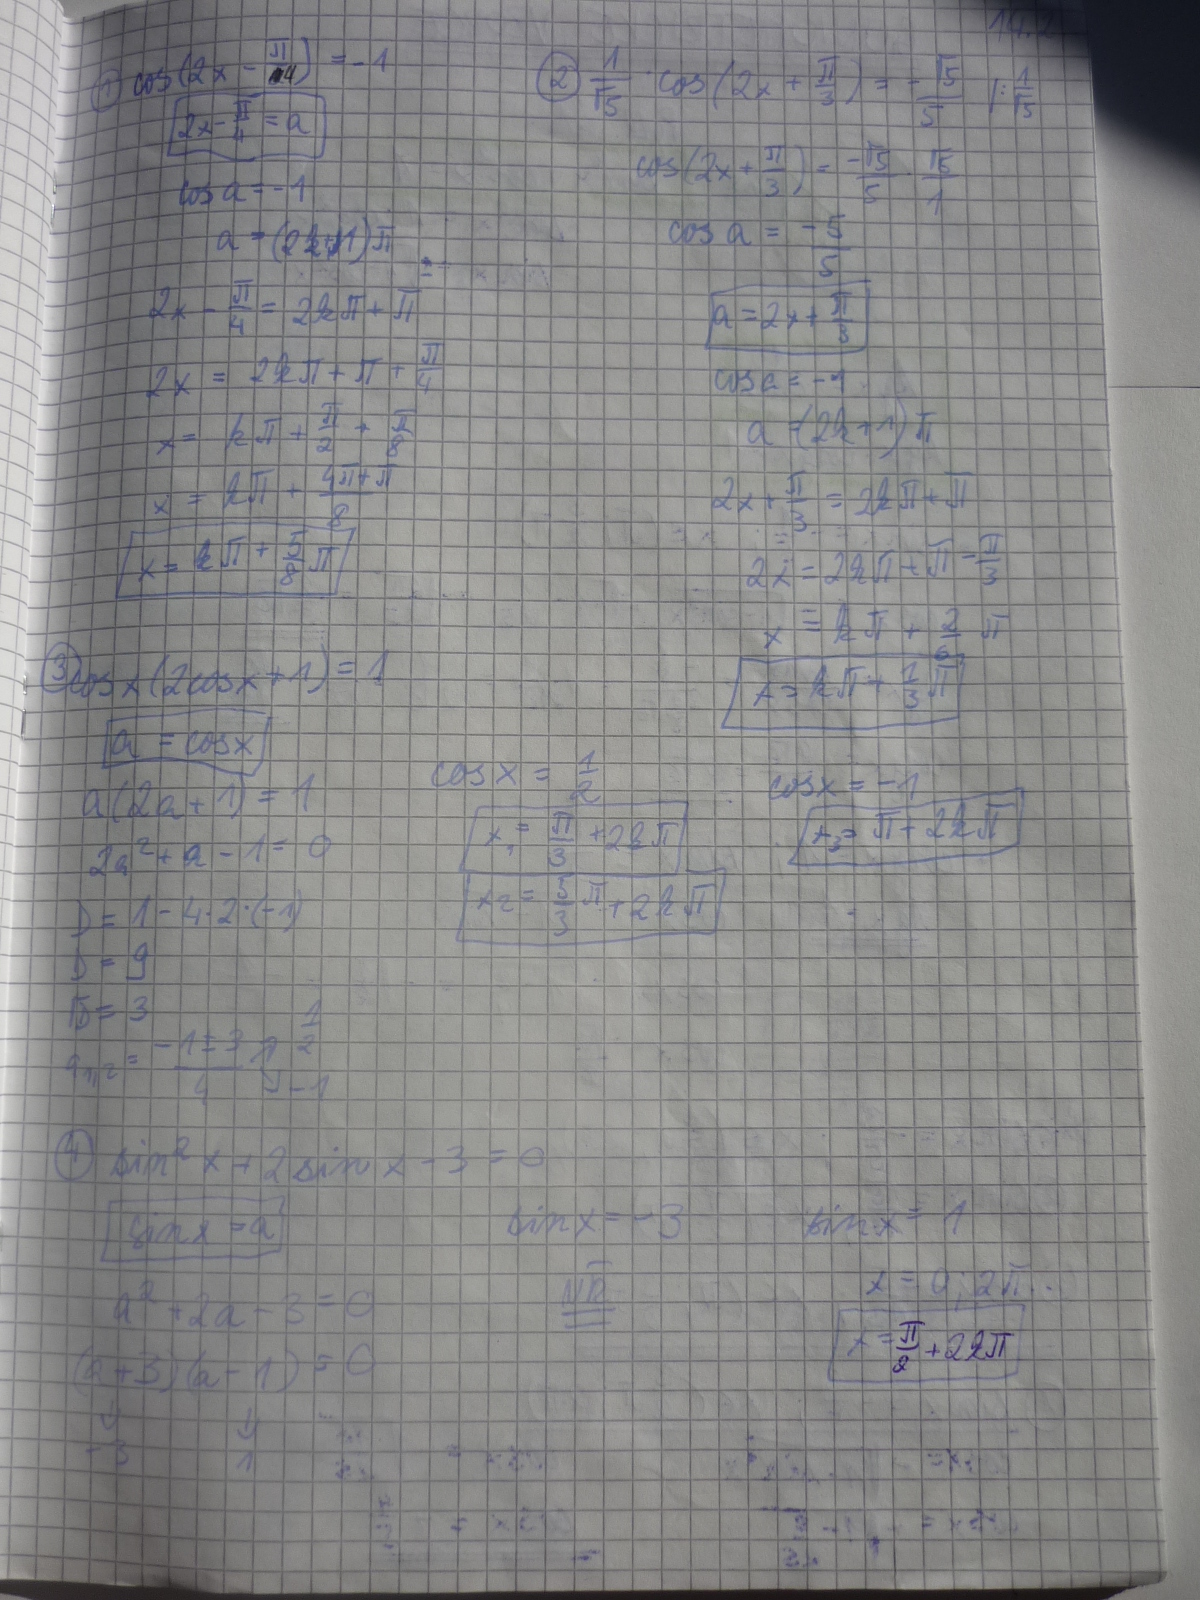 14.2
① cos(2x - π/4) = -1
2x - π/4 = a
cos a = -1
a = (2k+1)π
2x - π/4 = 2kπ + π
2x = 2kπ + π + π/4
x = kπ + π/2 + π/8
x = kπ + (4π+π)/8
x = kπ + 5/8 π
② 1/√5 cos(2x + π/3) = -√5/5 |: 1/√5
cos(2x + π/3) = -√5/5 · √5/1
cos a = -5/5
a = 2x + π/3
cos a = -1
a = (2k+1)π
2x + π/3 = 2kπ + π
2x = 2kπ + π - π/3
x = kπ + 2/6 π
x = kπ + 1/3 π
③ cos x (2cos x + 1) = 1
a = cos x
a(2a + 1) = 1
2a² + a - 1 = 0
D = 1 - 4·2·(-1)
D = 9
√D = 3
a₁,₂ = (-1 ± 3)/4 ↗ 1/2
↘ -1
cos x = 1/2
x₁ = π/3 + 2kπ
x₂ = 5/3 π + 2kπ
cos x = -1
x₃ = π + 2kπ
④ sin² x + 2 sin x - 3 = 0
sin x = a
a² + 2a - 3 = 0
(a + 3)(a - 1) = 0
↓ ↓
-3 1
sin x = -3
sin x = 1
x = 0; 2π...
x = π/2 + 2kπ